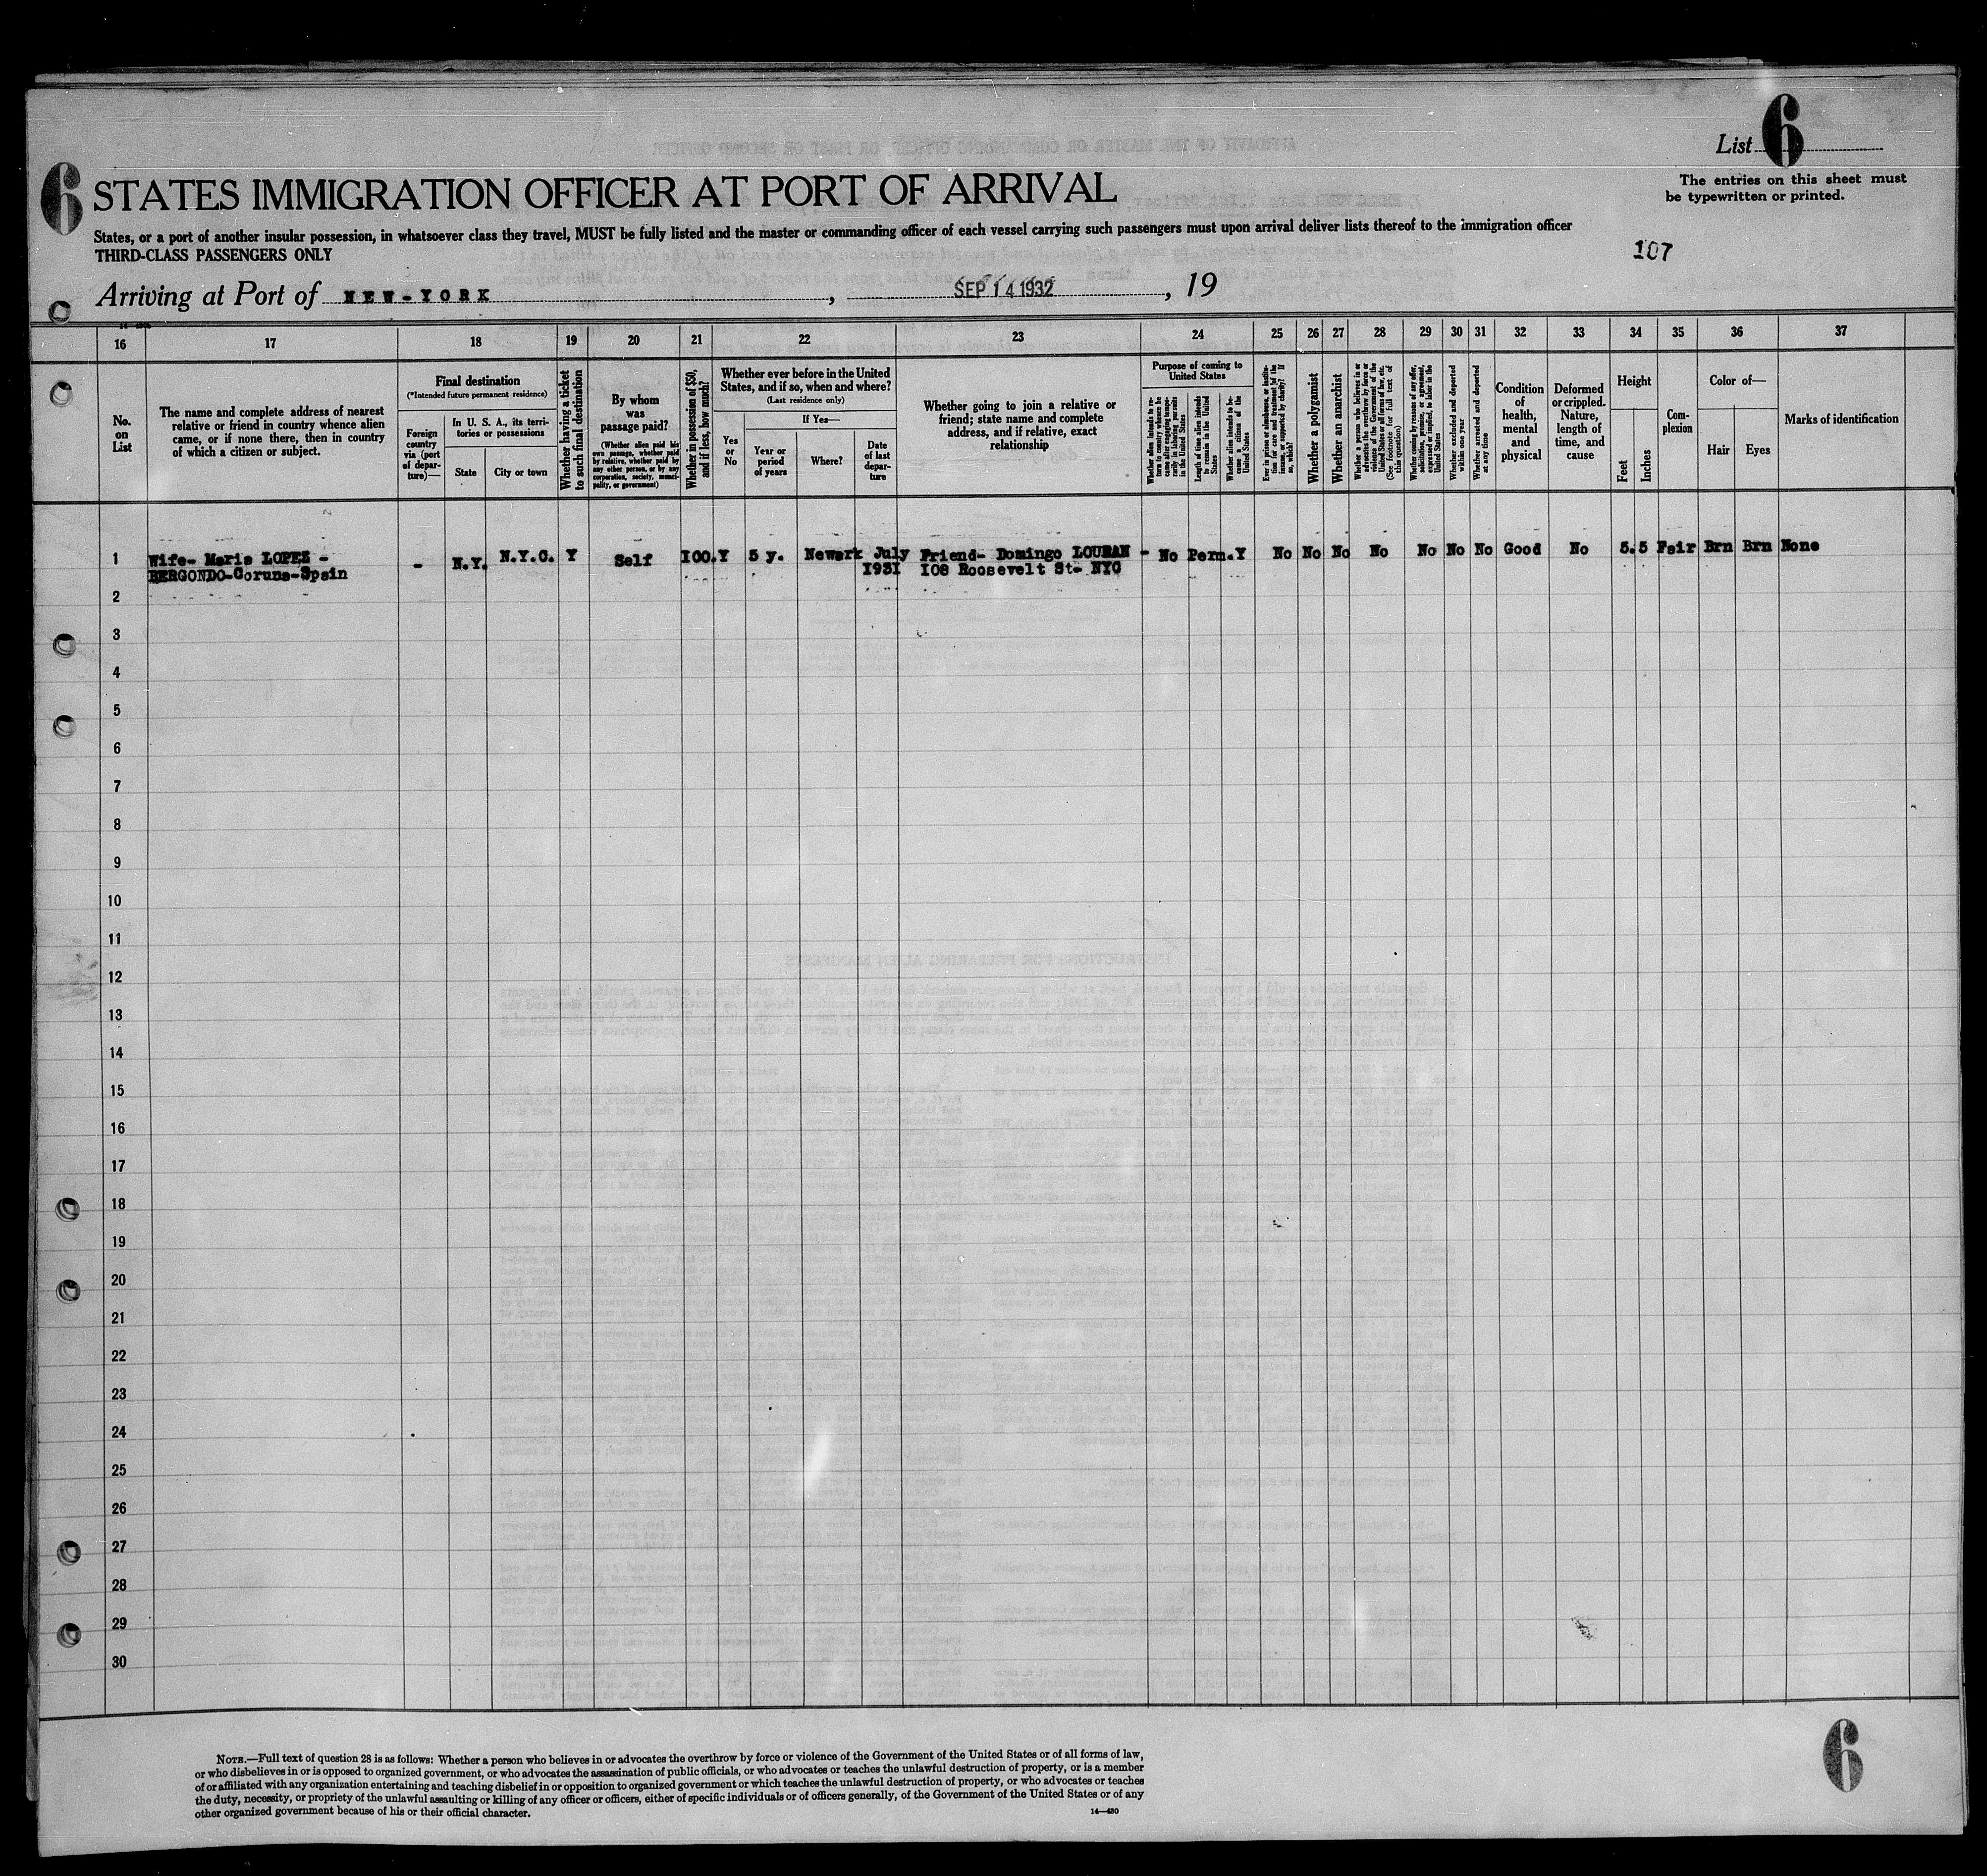 List 6
The entries on this sheet must
be typewritten or printed.
6
STATES IMMIGRATION OFFICER AT PORT OF ARRIVAL
States, or a port of another insular possession, in whatsoever class they travel, MUST be fully listed and the master or commanding officer of each vessel carrying such passengers must upon arrival deliver lists thereof to the immigration officer
THIRD-CLASS PASSENGERS ONLY
107
Arriving at Port of NEW-YORK, SEP 14 1932, 19
16 17 18 19 20 21 22 23 24 25 26 27 28 29 30 31 32 33 34 35 36 37
No.
on
List
The name and complete address of nearest
relative or friend in country whence alien
came, or if none there, then in country
of which a citizen or subject.
Final destination
(*Intended future permanent residence)
Foreign
country
via (port
of depar-
ture)—
In U. S. A., its terri-
tories or possessions
State
City or town
Whether having a ticket
to such final destination
By whom
was
passage paid?
(Whether alien paid his
own passage, whether paid
by relative, whether paid by
any other person, or by any
corporation, society, munici-
pality, or government)
Whether in possession of $50,
and if less, how much?
Whether ever before in the United
States, and if so, when and where?
(Last residence only)
Yes
or
No
If Yes—
Year or
period
of years
Where?
Date
of last
depar-
ture
Whether going to join a relative or
friend; state name and complete
address, and if relative, exact
relationship
Purpose of coming to
United States
Whether alien intends to re-
turn to country whence he
came after engaging tempo-
rarily in laboring pursuits
in the United States
Length of time alien intends
to remain in the United
States
Whether alien intends to be-
come a citizen of the
United States
Ever in prison or almshouse, or institu-
tion for care and treatment of the
insane, or supported by charity? If
so, which?
Whether a polygamist
Whether an anarchist
Whether a person who believes in or
advocates the overthrow by force or
violence of the Government of the
United States or all forms of law, etc.
(See footnote for full text of
this question)
Whether coming by reasons of any offer,
solicitation, promise, or agreement,
expressed or implied, to labor in the
United States
Whether excluded and deported
within one year
Whether arrested and deported
at any time
Condition
of
health,
mental
and
physical
Deformed
or crippled.
Nature,
length of
time, and
cause
Height
Feet
Inches
Com-
plexion
Color of—
Hair
Eyes
Marks of identification
1 Wife- Maria LOPEZ - - N.Y. N.Y.C. Y Self 100. Y 5 y. Newark July Friend- Domingo LOUZAN - No Perm. Y No No No No No No No Good No 5. 5 Fair Brn Brn None
BERGONDO-Coruna-Spain 1931 108 Roosevelt St- NYC
2
3
4
5
6
7
8
9
10
11
12
13
14
15
16
17
18
19
20
21
22
23
24
25
26
27
28
29
30
NOTE.—Full text of question 28 is as follows: Whether a person who believes in or advocates the overthrow by force or violence of the Government of the United States or of all forms of law,
or who disbelieves in or is opposed to organized government, or who advocates the assassination of public officials, or who advocates or teaches the unlawful destruction of property, or is a member
of or affiliated with any organization entertaining and teaching disbelief in or opposition to organized government or which teaches the unlawful destruction of property, or who advocates or teaches
the duty, necessity, or propriety of the unlawful assaulting or killing of any officer or officers, either of specific individuals or of officers generally, of the Government of the United States or of any
other organized government because of his or their official character.
14—430
6